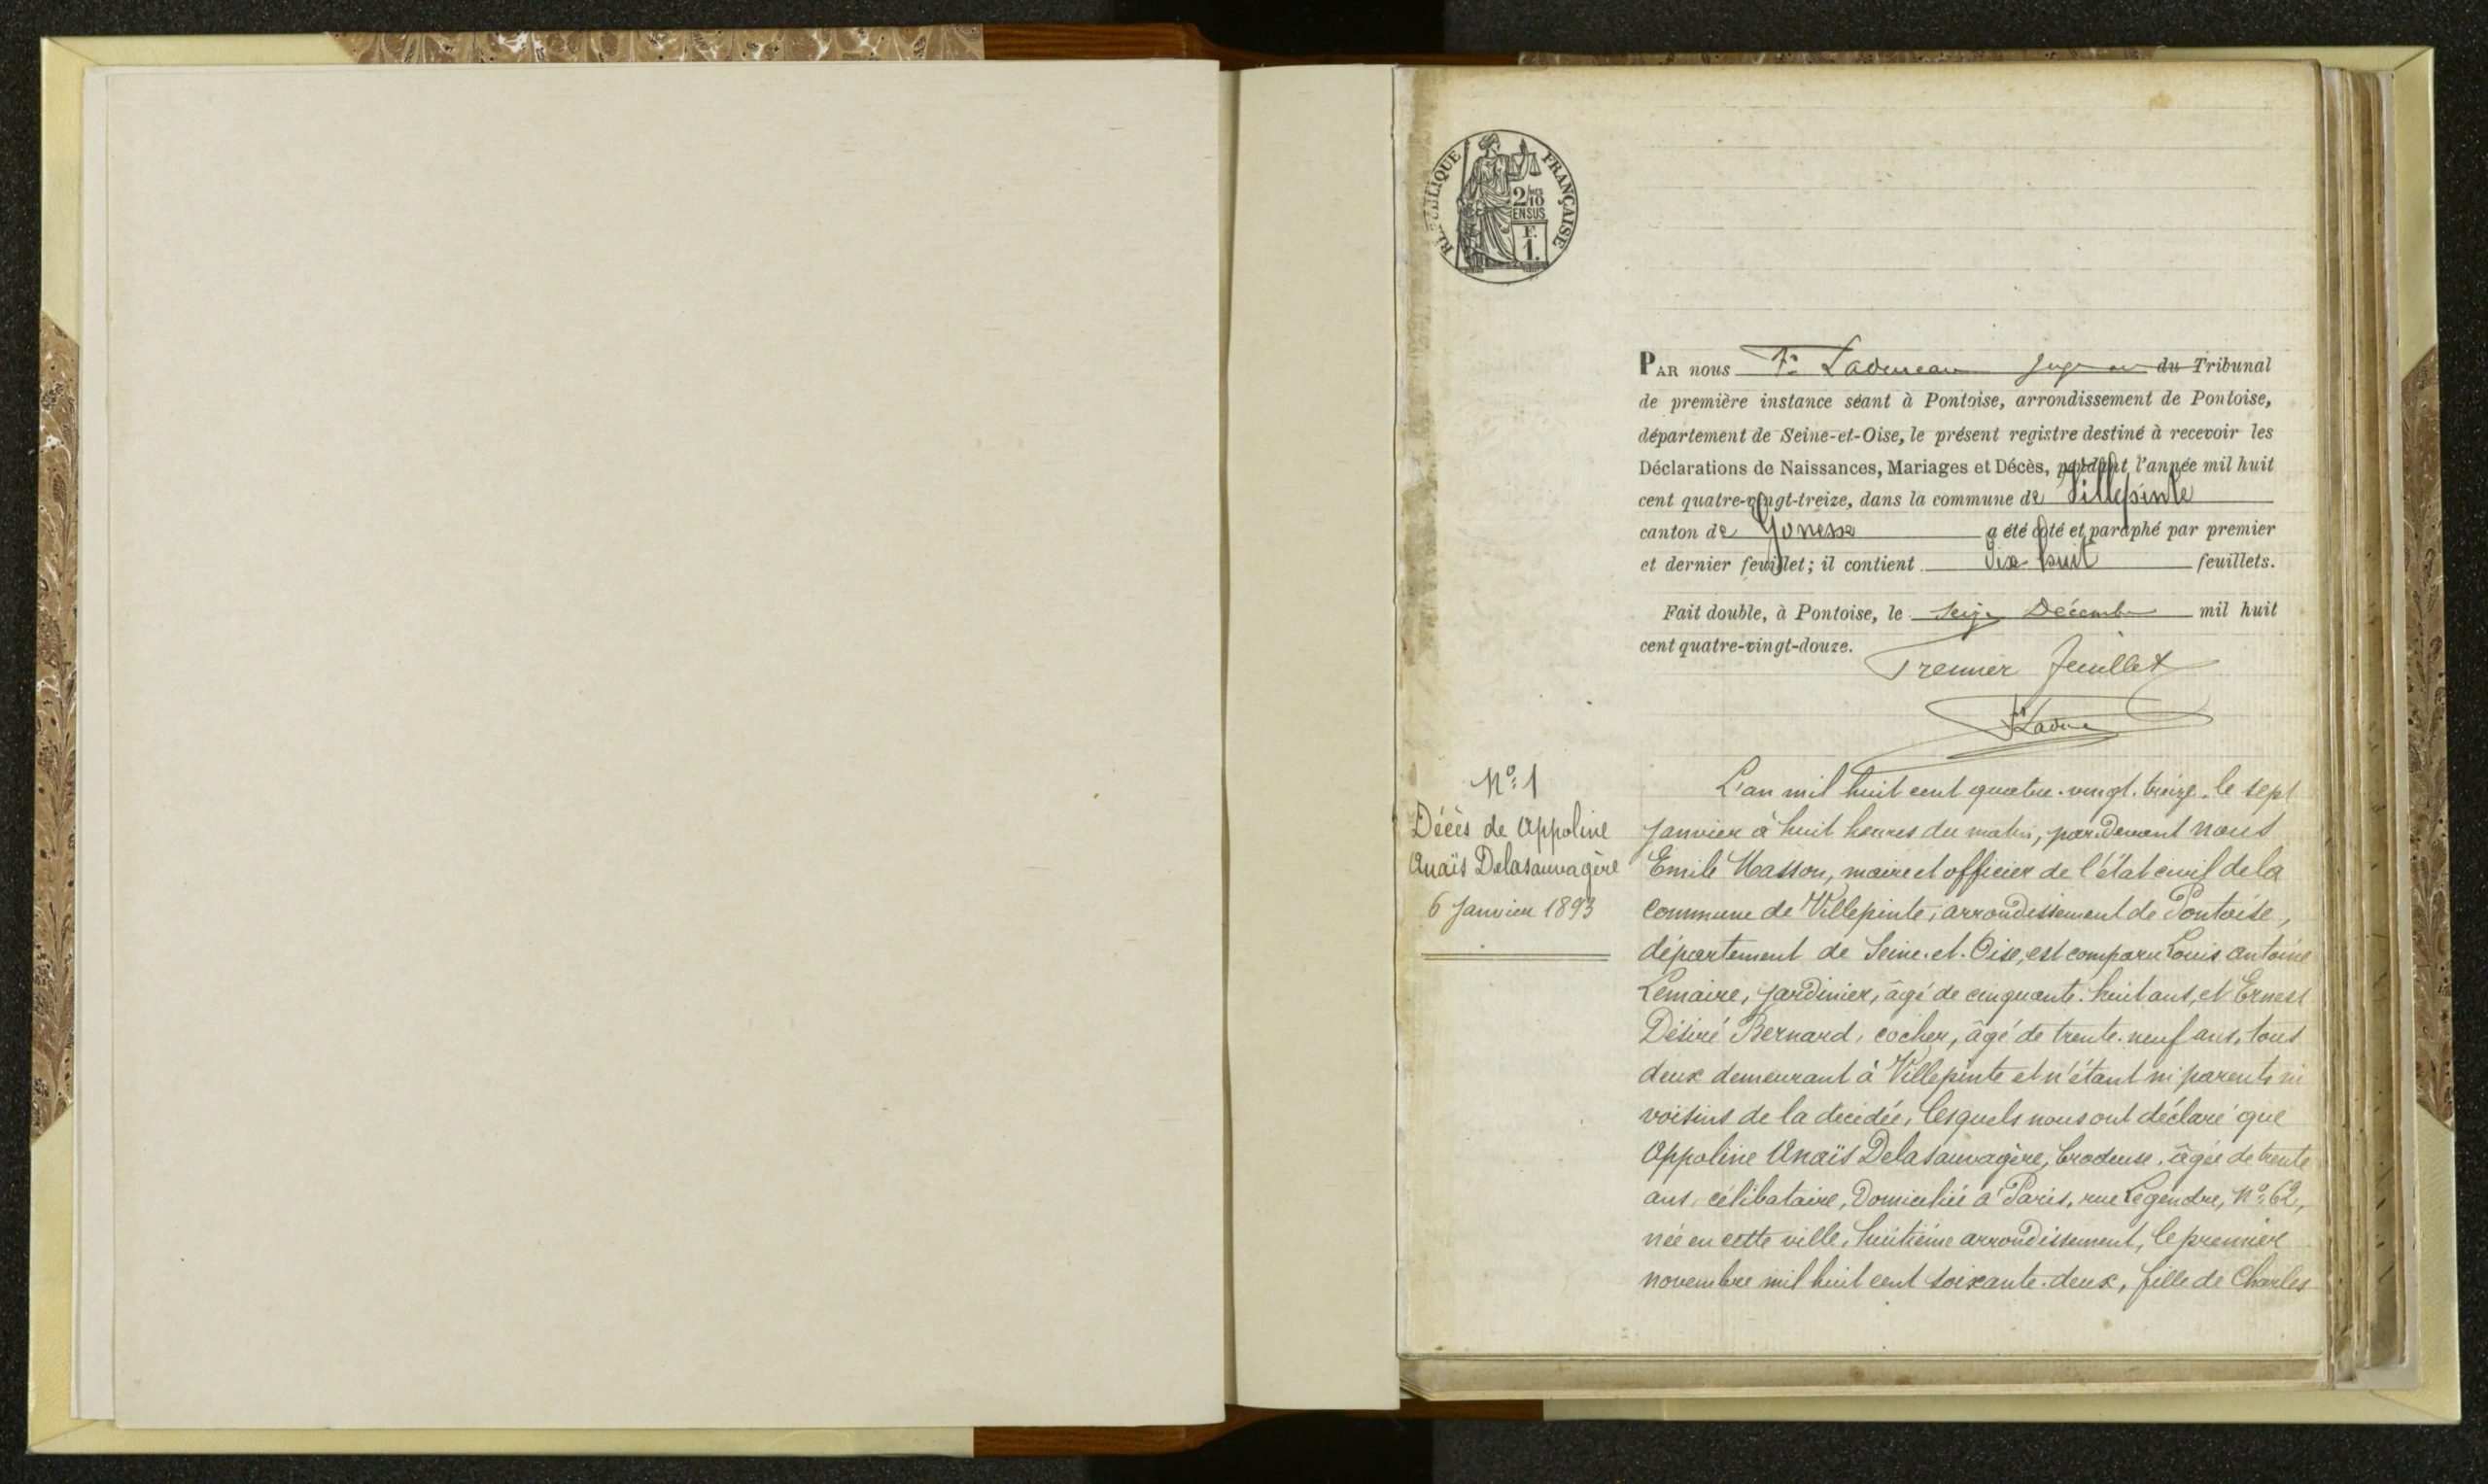 RÉPUBLIQUE FRANÇAISE
2/10
EN SUS
F.
1.
PAR nous Fs Ladureau juge au du Tribunal
de première instance séant à Pontoise, arrondissement de Pontoise,
département de Seine-et-Oise, le présent registre destiné à recevoir les
Déclarations de Naissances, Mariages et Décès, pendant l'année mil huit
cent quatre-vingt-treize, dans la commune de Villepinte
canton de Gonesse a été coté et paraphé par premier
et dernier feuillet; il contient Dix-huit feuillets.
Fait double, à Pontoise, le Seize Décembre mil huit
cent quatre-vingt-douze.
Premier feuillet
N°: 1
Décès de Appoline
Anaïs Delasauvagère
6 Janvier 1893
L'an mil huit cent quatre-vingt-treize, le sept
Janvier à huit heures du matin, par devant nous
Emile Masson, maire et officier de l'état civil de la
commune de Villepinte, arrondissement de Pontoise,
département de Seine-et-Oise, est comparu Louis Antoine
Lemaire, jardinier, âgé de cinquante-huit ans, et Ernest
Désiré Bernard, cocher, âgé de trente-neuf ans, tous
deux demeurant à Villepinte et n'étant ni parents ni
voisins de la décédée, lesquels nous ont déclaré que
Appoline Anaïs Delasauvagère, brodeuse, âgée de trente
ans, célibataire, domiciliée à Paris, rue Legendre, N°: 62,
née en cette ville, huitième arrondissement, le premier
novembre mil huit cent soixante-deux, fille de Charles